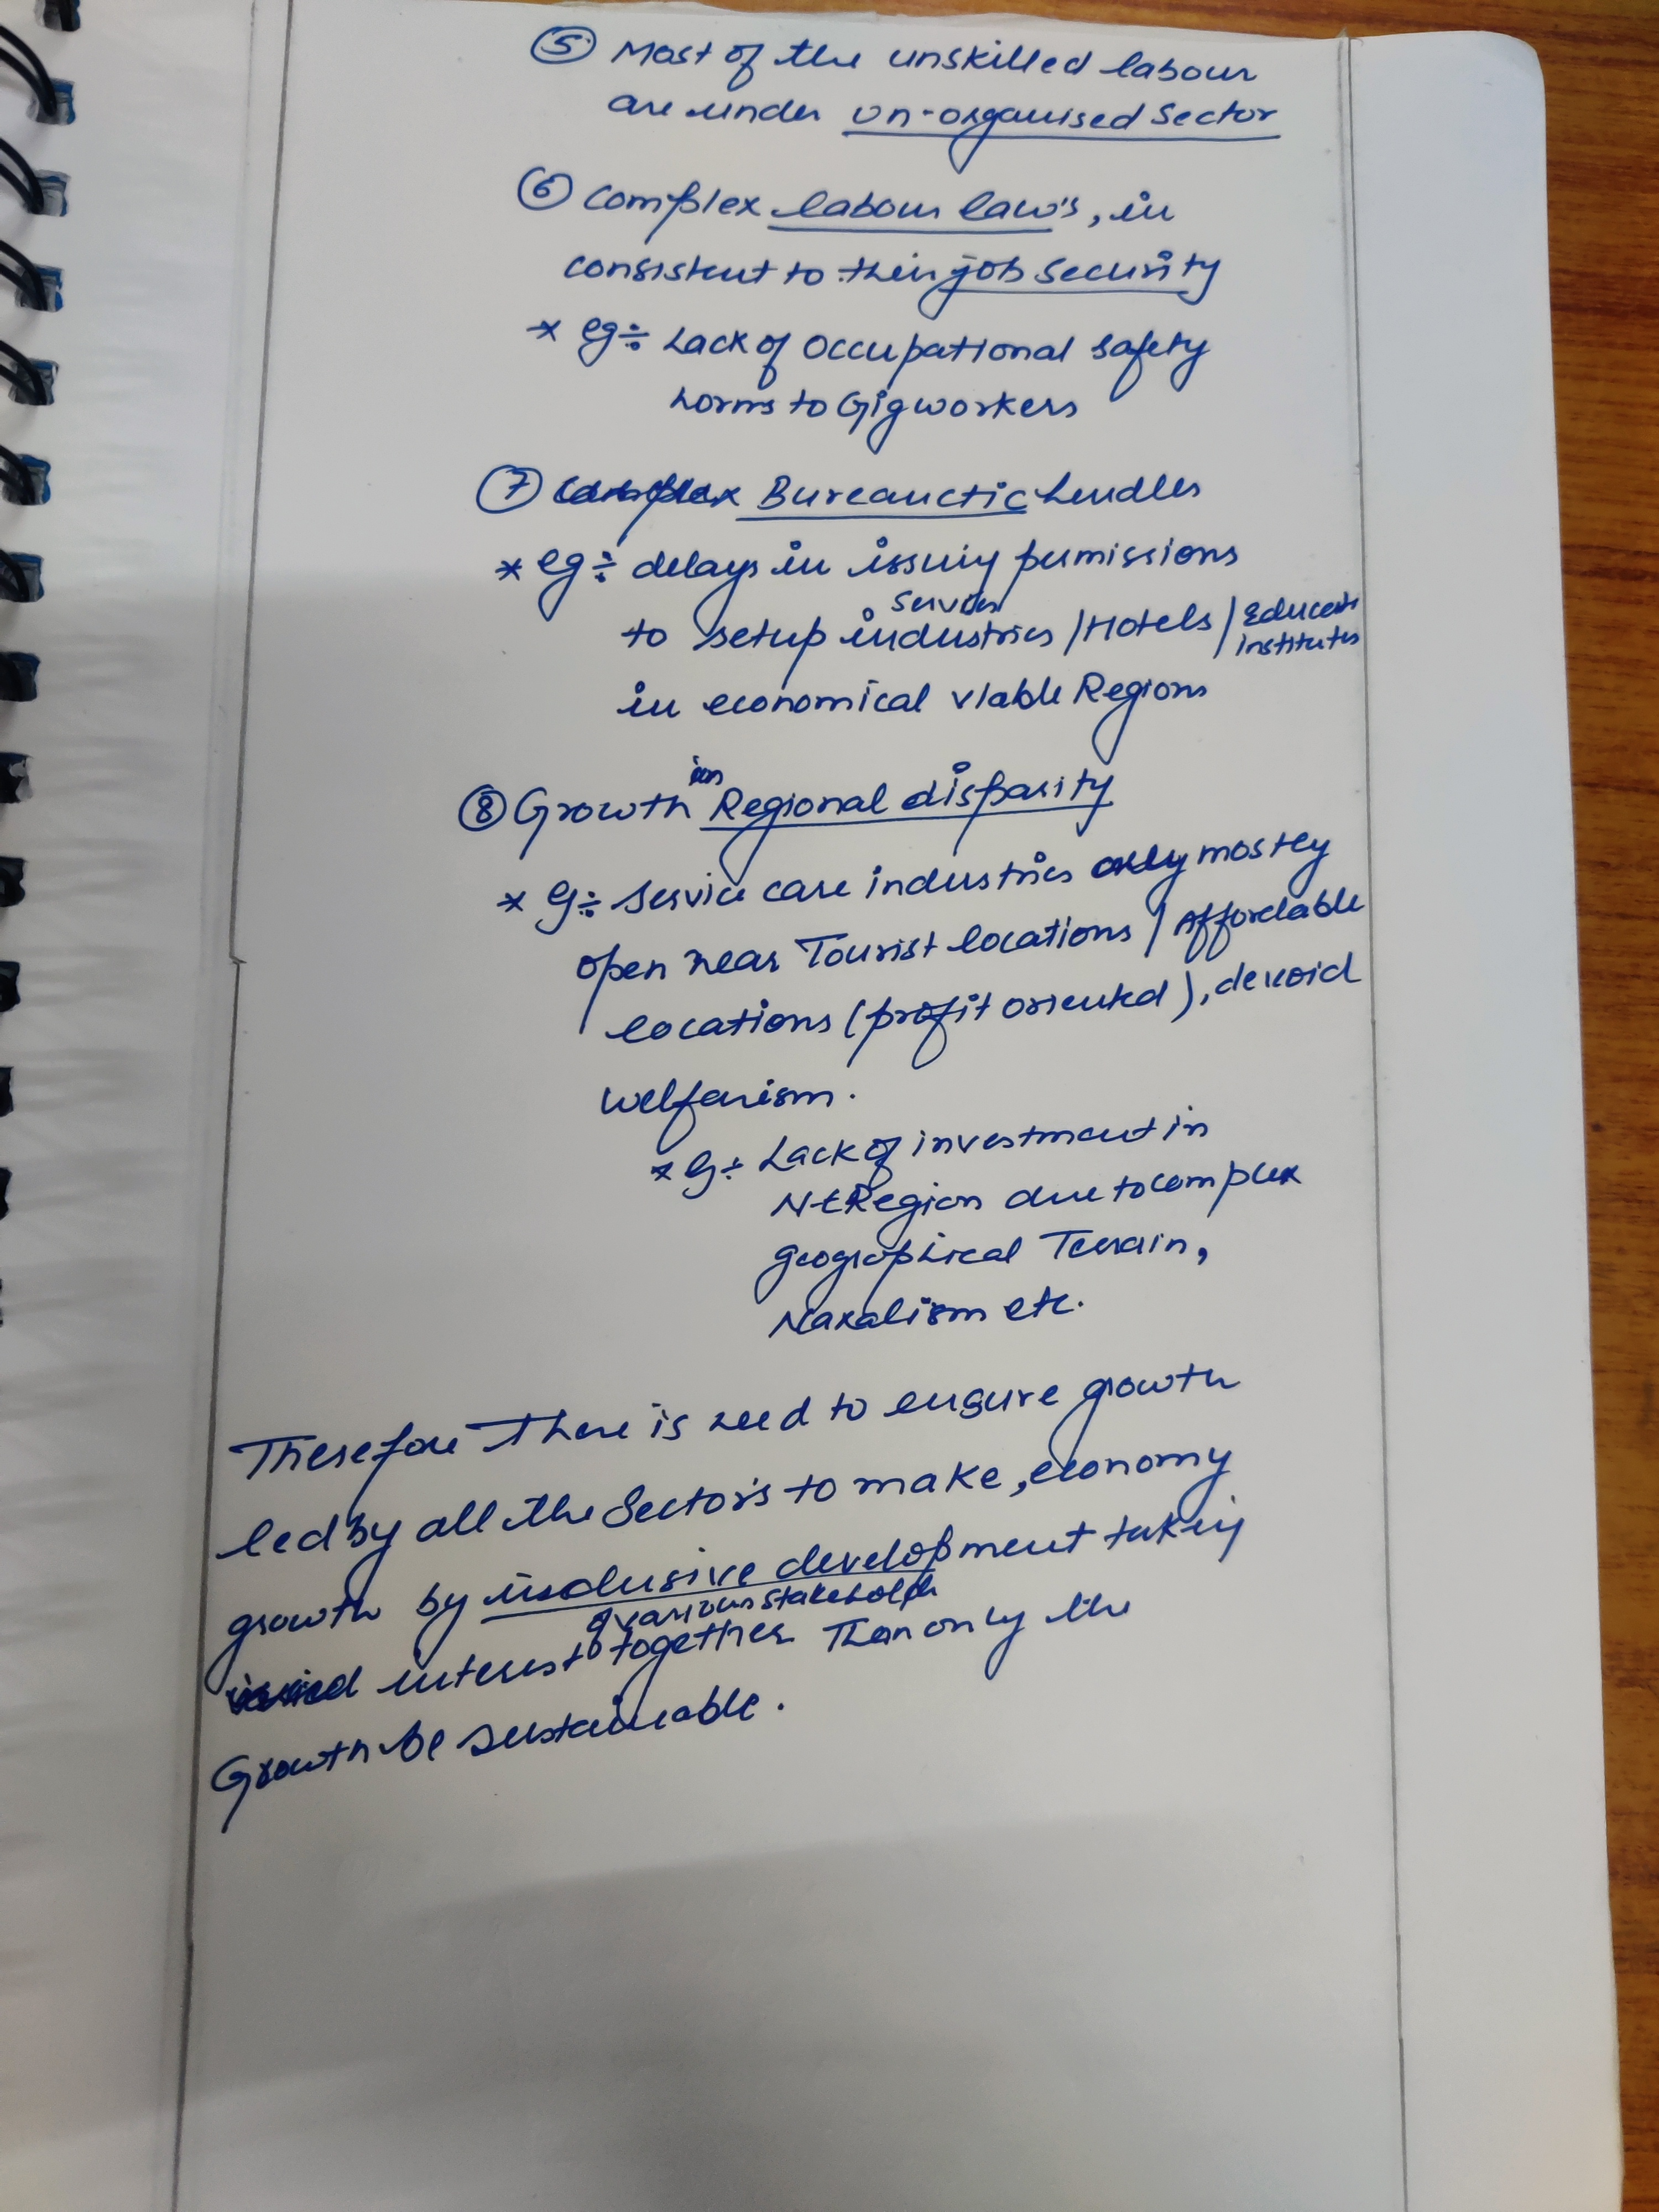 ⑤ Most of the unskilled labour
are under un-organised Sector
⑥ Complex labour law's, in
consistent to their job security
* eg÷ Lack of occupational safety
norms to Gig workers
⑦ Complex Bureauctic hurdles
* eg÷ delays in issuing permissions
to setup service industries / Hotels / Educati institutes
in economical viable Regions
⑧ Growth in Regional disparity
* Eg÷ Service care industries only mostly
open near Tourist locations / Affordable
locations (profit oriented), devoid
welfarism.
* Eg÷ Lack of investment in
NE Region due to complex
geographical Terrain,
Naxalism etc.
Therefore there is need to ensure growth
led by all the Sectors to make, economy
growth by inclusive development taking
interest of various stakeholder together. Than only the
Growth be sustainable.